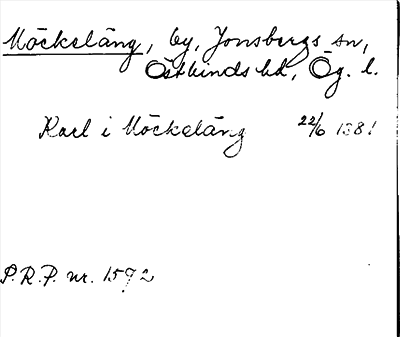 Möckeläng, by, Jonsbergs sn,
Östkinds hd, Ög. l.
Karl i Möckeläng 22/6 1381
P.R.P. nr. 1592